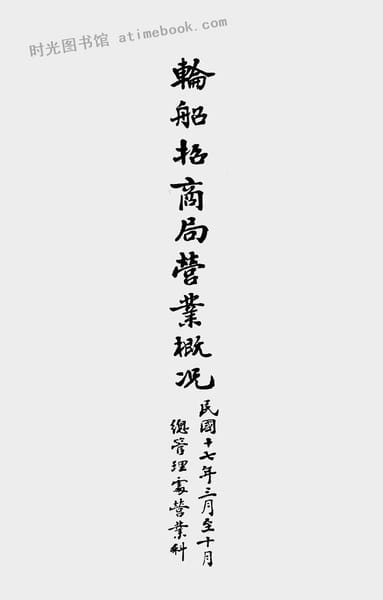 时光图书馆 atimebook.com
輪船招商局營業概况
民國十七年三月至十月
總管理處營業科